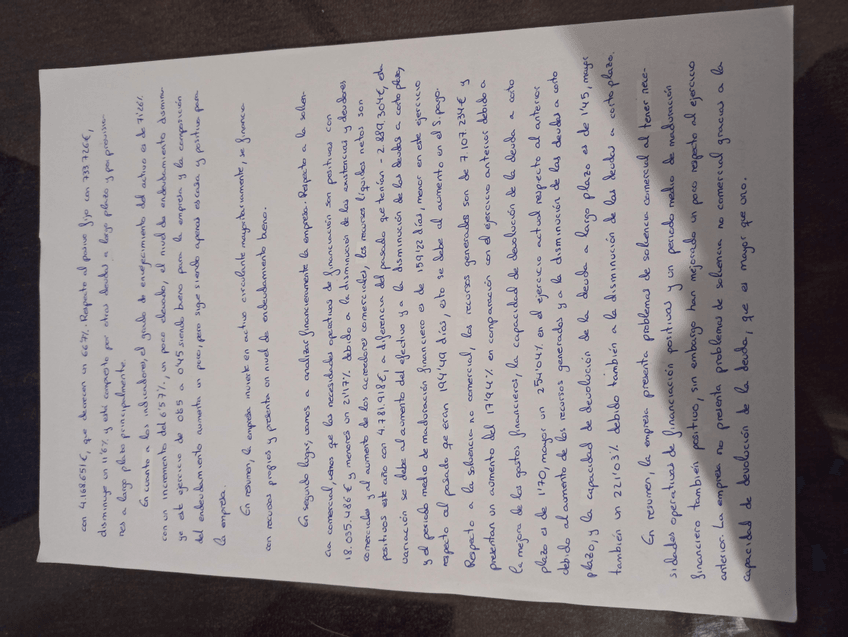 con 4.168.651€, que decrecen un 6'67%. Respecto al pasivo fijo con 733.726€,
disminuye un 11'6% y está compuesto por otras deudas a largo plazo y por provisio-
nes a largo plazo principalmente.
En cuanto a los indicadores, el grado de envejecimiento del activo es de 71'26%
con un incremento del 6'57%, un poco elevado, el nivel de endeudamiento disminu-
ye este ejercicio de 0'65 a 0'45 siendo bueno para la empresa y la composición
del endeudamiento aumenta un poco, pero sigue siendo apenas escasa y positivo para
la empresa.
En resumen, la empresa invierte en activo circulante mayoritariamente, se financia
con recursos propios y presenta un nivel de endeudamiento bueno.
En segundo lugar, vamos a analizar financieramente la empresa. Respecto a la solven-
cia comercial, vemos que las necesidades operativas de financiación son positivas con
18.055.486€ y menores un 21'17% debido a la disminución de las existencias y deudores
comerciales y al aumento de los acreedores comerciales, los recursos líquidos netos son
positivos este año con 4.781.918€, a diferencia del pasado que tenían -2.889.304€, esta
variación se debe al aumento del efectivo y a la disminución de las deudas a corto plazo,
y el periodo medio de maduración financiero es de 159'22 días, menor en este ejercicio
respecto al pasado que eran 194'49 días, esto se debe al aumento en el S. pago.
Respecto a la solvencia no comercial, los recursos generales son de 7.107.234€ y
presentan un aumento del 17'94% en comparación con el ejercicio anterior debido a
la mejora de los gastos financieros, la capacidad de devolución de la deuda a corto
plazo es de 1'70, mayor un 254'04% en el ejercicio actual respecto al anterior
debido al aumento de los recursos generados y a la disminución de las deudas a corto
plazo, y la capacidad de devolución de la deuda a largo plazo es de 1'45, mayor
también un 221'03% debido también a la disminución de las deudas a corto plazo.
En resumen, la empresa presenta problemas de solvencia comercial al tener nece-
sidades operativas de financiación positivas y un periodo medio de maduración
financiero también positivo, sin embargo han mejorado un poco respecto al ejercicio
anterior. La empresa no presenta problemas de solvencia no comercial gracias a la
capacidad de devolución de la deuda, que es mayor que uno.